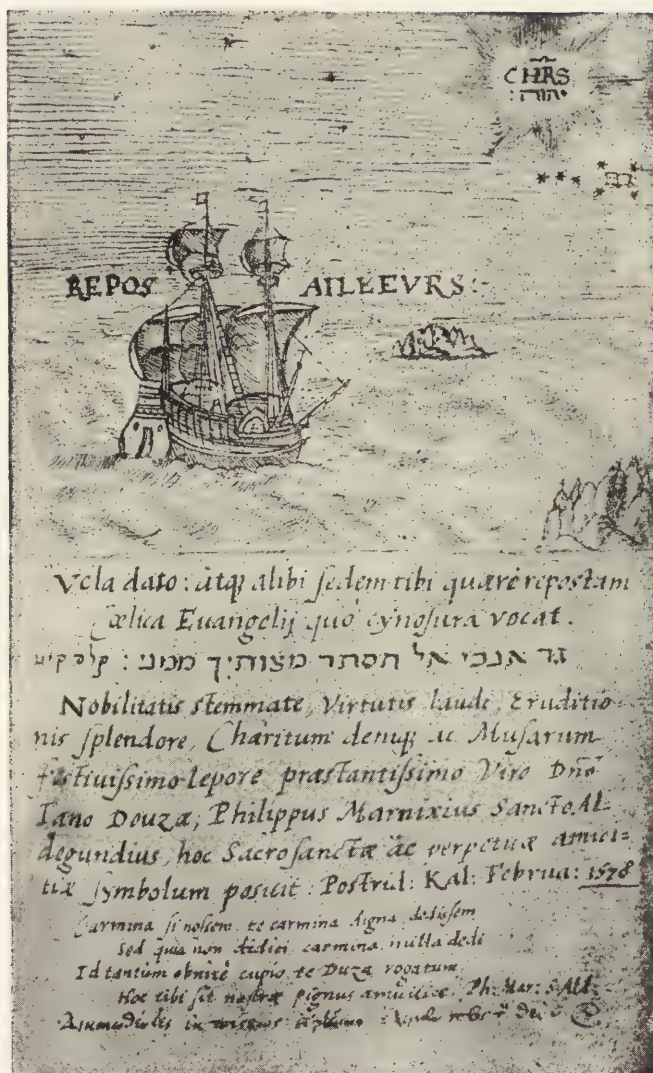 CHRS
יהוה:
REPOS AILLEVRS:
Vela dato: atq3 alibi sedem tibi quære repostam
Cælica Euangelij quò cynosura vocat.
גר אנכי אל תסתר מצותיך ממני :
Nobilitatis stemmate, Virtutis laude, Eruditio-
nis splendore, Charitum deniq3 ac Musarum
festiuissimo lepore præstantissimo Viro Dño
Iano Douzæ, Philippus Marnixius Sancto Al=
degundius, hoc Sacrosanctæ ac perpetuæ amici=
tiæ symbolum posuit. Postrid: Kal: Februa: 1578
Carmina si nossem te carmina digna dedissem
Sed quia non didici carmina nulla dedi
Id tantum obnixè cupio te Duza rogatum
Hoc tibi sit nostræ pignus amicitiæ. Ph: Mar: S. Ald: